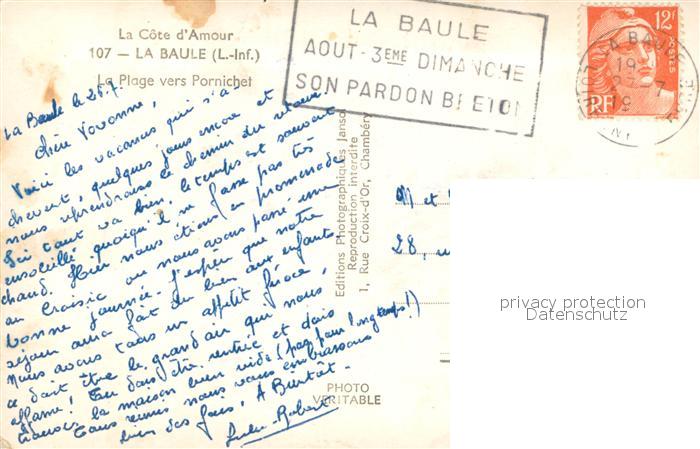 La Côte d'Amour
107 — LA BAULE (L.-Inf.)
La Plage vers Pornichet
LA BAULE
AOUT - 3EME DIMANCHE
SON PARDON BRETON
12F
POSTES
RF
LA BAULE
19
La Baule le 26.7.
Chère Yvonne,
Voici les vacances qui s'a
chèvent, quelques jours encore et
nous reprendrons le chemin du retour
Ici tout va bien, le temps est souvent
ensoleillé quoiqu'il ne fasse pas très
chaud. Hier nous étions en promenade
au Croisic où nous avons passé une
bonne journée. J'espère que notre
séjour aura fait du bien aux enfants
Nous avons tous un appétit féroce,
ce doit être le grand air qui nous
affame! Tu dois être rentrée et dois
trouver la maison bien vide (pas pour longtemps!)
Tous nous vous embrassons
bien des fois, A Bientôt.
Robert
Editions Photographiques Janso
Reproduction interdite
1, Rue Croix-d'Or, Chambéry
PHOTO
VERITABLE
M et
28,
privacy protection
Datenschutz